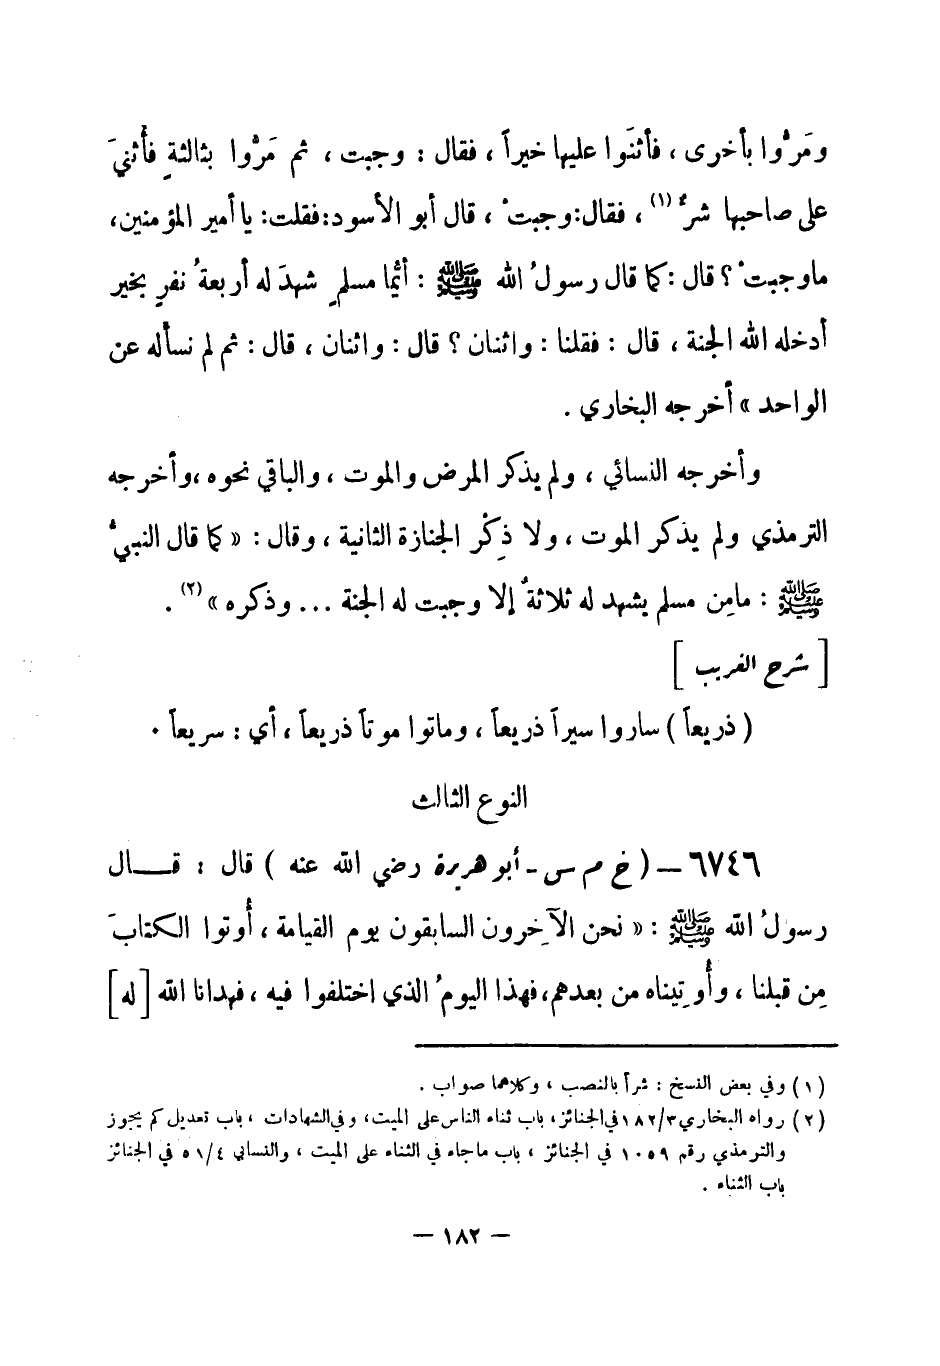 ومَرُّوا بأخرى ، فأثنَوا عليها خيراً ، فقال : وجبت ، ثم مَرُّوا بثالثةٍ فأُثنيَ
على صاحبها شرٌّ (١) ، فقال:وجبتْ ، قال أبو الأسود:فقلت: يا أمير المؤمنين،
ماوجبتْ ؟ قال :كما قال رسولُ الله ﷺ : أيُّما مسلمٍ شهدَ له أربعةُ نفرٍ بخير
أدخله الله الجنة ، قال : فقلنا : واثنان ؟ قال : واثنان ، قال : ثم لم نسأله عن
الواحد » أخرجه البخاري .
وأخرجه النسائي ، ولم يذكر المرض والموت ، والباقي نحوه ،وأخرجه
الترمذي ولم يذكر الموت ، ولا ذِكْر الجنازة الثانية ، وقال : « كما قال النبيُّ
ﷺ : مامِن مسلم يشهد له ثلاثةٌ إلا وجبت له الجنة ... وذكره » (٢) .
[ شرح الغريب ]
( ذريعاً ) ساروا سيراً ذريعاً ، وماتوا موتاً ذريعاً ، أي : سريعاً .
النوع الثالث
٦٧٤٦ — ( خ م س - أبو هريرة رضي الله عنه ) قال : قـــال
رسولُ الله ﷺ : « نحن الآخِرون السابقون يوم القيامة ، أُوتوا الكتابَ
مِن قبلنا ، وأُوتِيناه من بعدهم،فهذا اليومُ الذي اختلفوا فيه ، فهدانا الله [له]
(١) وفي بعض النسخ : شراً بالنصب ، وكلاهما صواب .
(٢) رواه البخاري ١٨٢/٣ في الجنائز، باب ثناء الناس على الميت، وفي الشهادات ، باب تعديل كم يجوز
والترمذي رقم ١٠٥٩ في الجنائز ، باب ماجاء في الثناء على الميت ، والنسائي ٥١/٤ في الجنائز
باب الثناء .
— ١٨٢ —